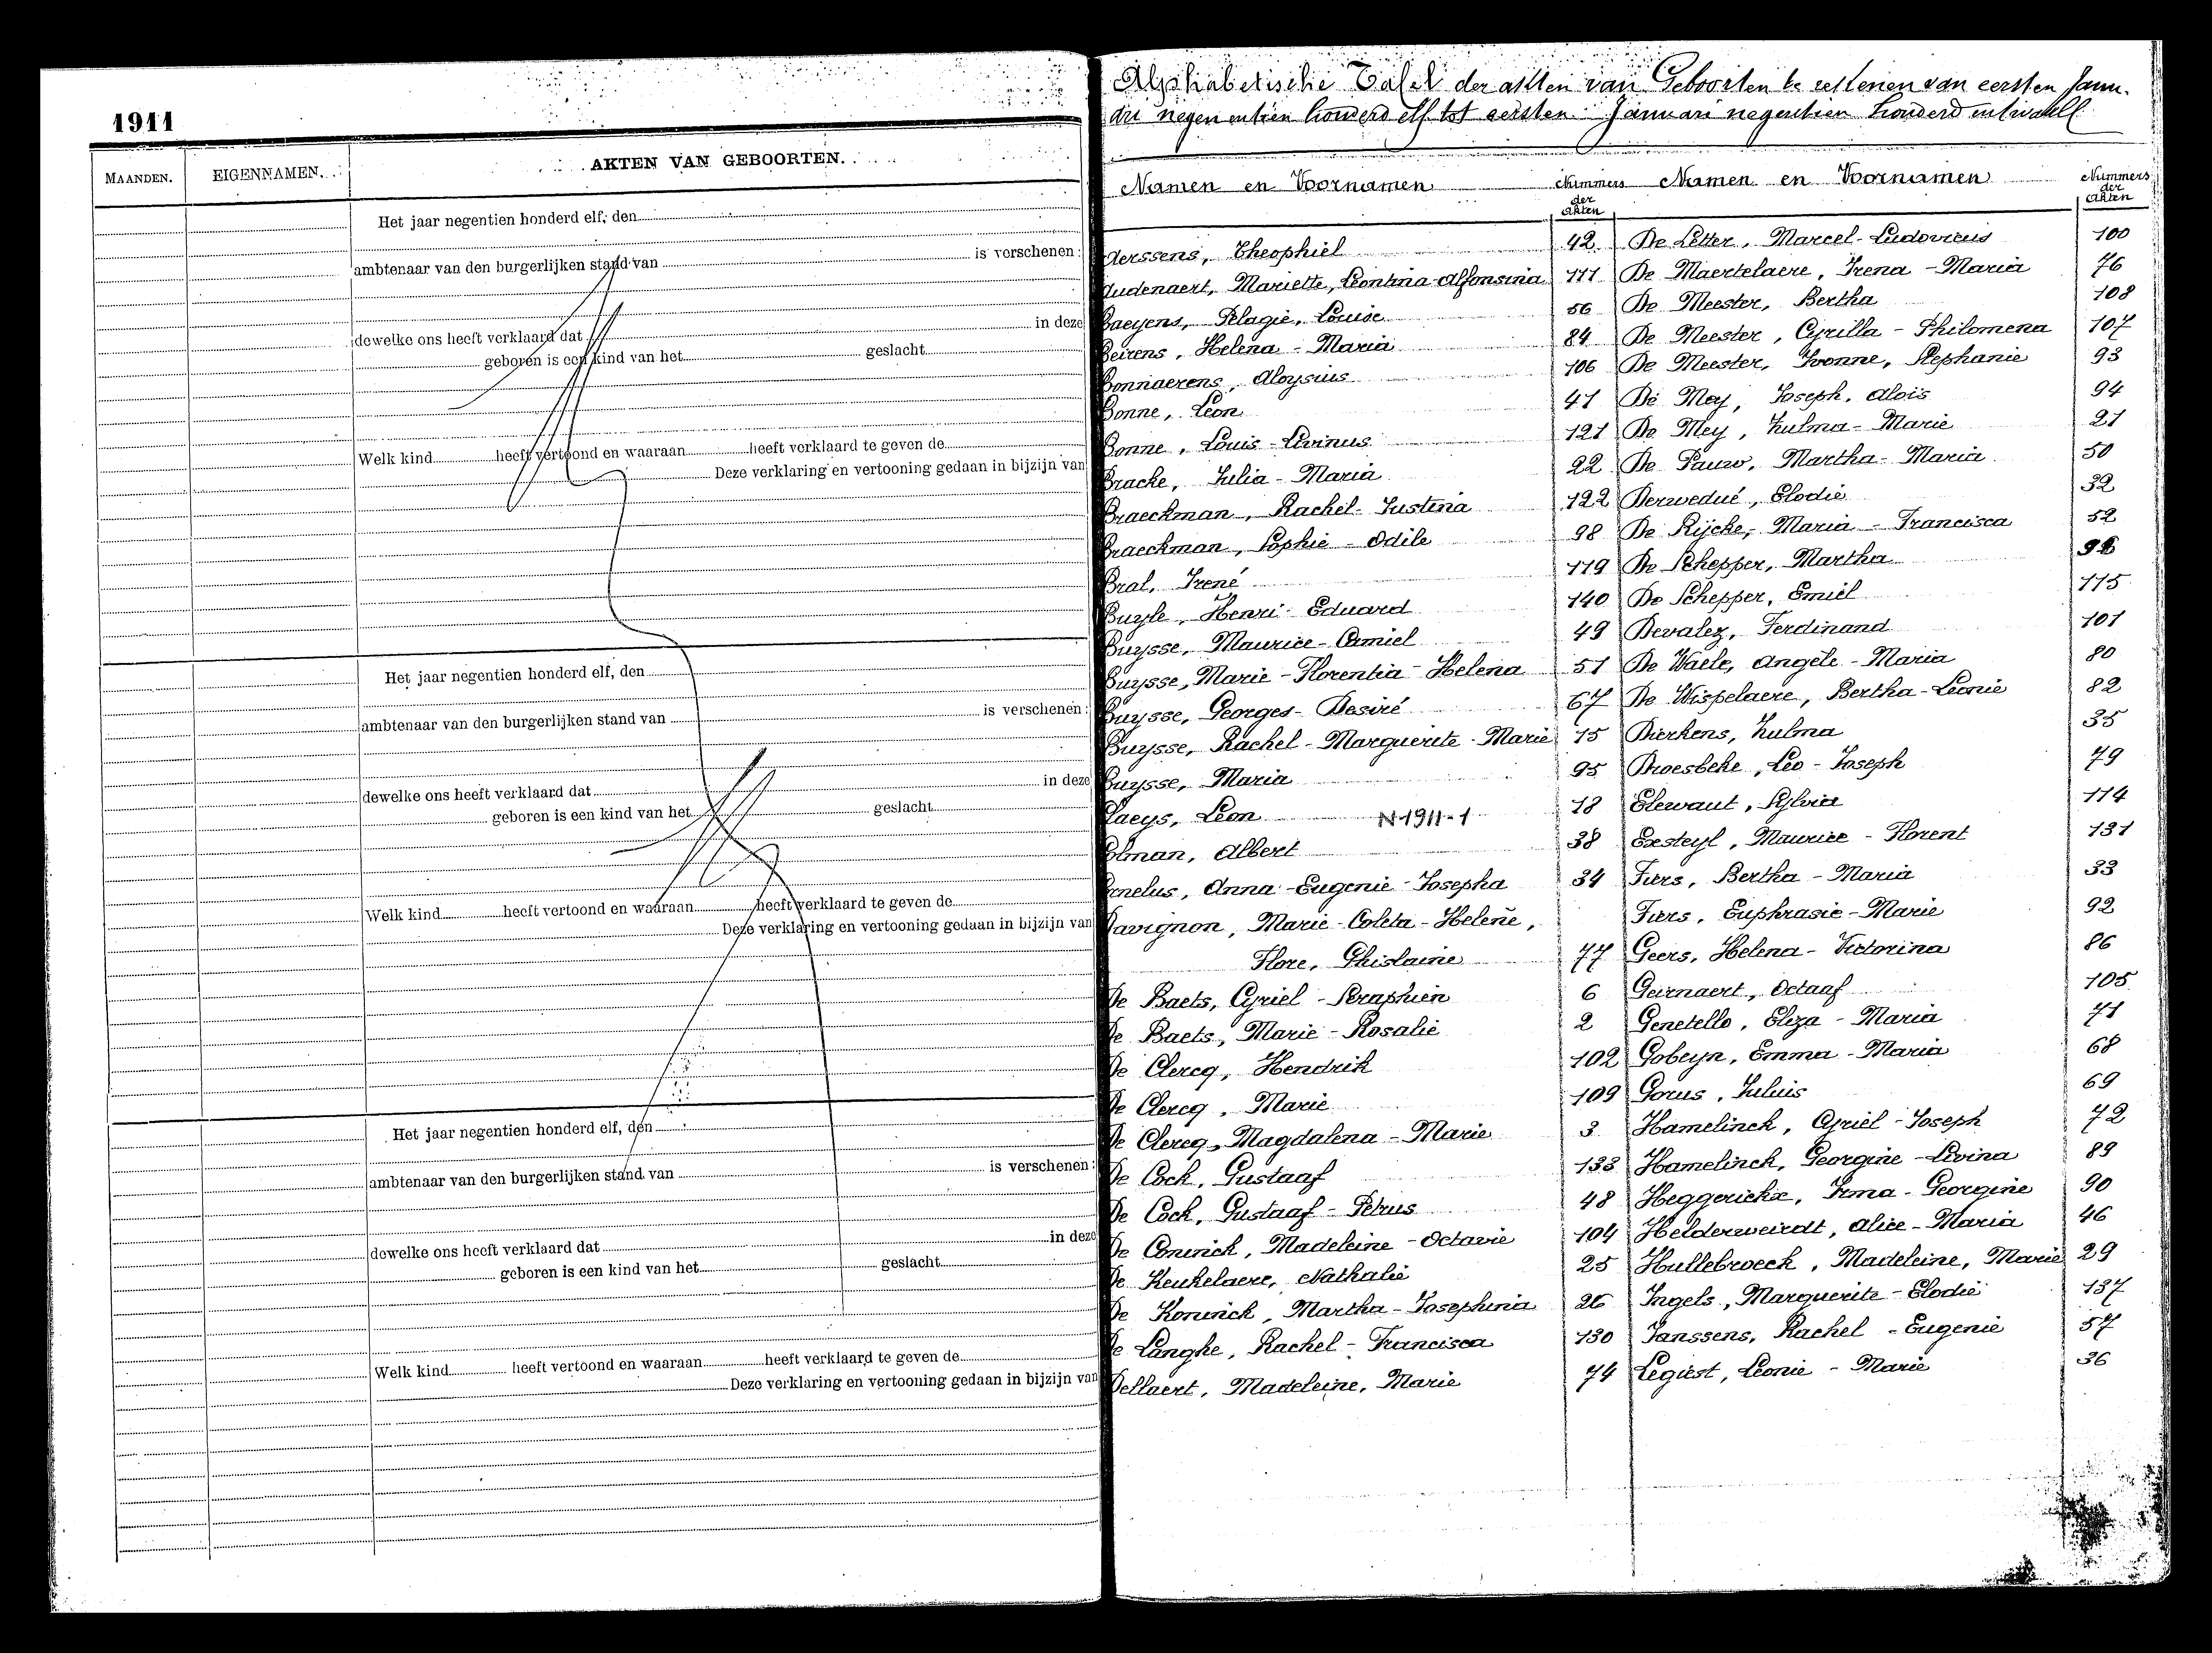 1911
MAANDEN.
EIGENNAMEN.
AKTEN VAN GEBOORTEN.
Het jaar negentien honderd elf, den
ambtenaar van den burgerlijken stand van is verschenen:
dewelke ons heeft verklaard dat in deze
geboren is een kind van het geslacht
Welk kind heeft vertoond en waaraan heeft verklaard te geven de
Deze verklaring en vertooning gedaan in bijzijn van
Het jaar negentien honderd elf, den
ambtenaar van den burgerlijken stand van is verschenen:
dewelke ons heeft verklaard dat in deze
geboren is een kind van het geslacht
Welk kind heeft vertoond en waaraan heeft verklaard te geven de
Deze verklaring en vertooning gedaan in bijzijn van
Het jaar negentien honderd elf, den
ambtenaar van den burgerlijken stand van is verschenen:
dewelke ons heeft verklaard dat in deze
geboren is een kind van het geslacht
Welk kind heeft vertoond en waaraan heeft verklaard te geven de
Deze verklaring en vertooning gedaan in bijzijn van
Alphabetische Tafel der akten van Geboorten te van eersten Janu-
ari negentien honderd elf tot eersten Januari negentien honderd
Namen en Voornamen
Nummers der Akten
Aerssens, Theophiel 42
Audenaert, Mariette, Leontina-Alfonsina 111
Baeyens, Pelagie, Louise 56
Beirens, Helena-Maria 84
Bonnaerens, Aloysius 106
Bonne, Leon 41
Bonne, Louis-Livinus 121
Bracke, Julia-Maria 22
Braeckman, Rachel-Justina 122
Braeckman, Sophie-Odile 98
Bral, Irené 119
Buyle, Henri-Eduard 140
Buysse, Maurice-Camiel 49
Buysse, Marie-Florentia-Helena 51
Buysse, Georges-Desiré 67
Buysse, Rachel-Marguerite-Marie 15
Buysse, Maria 95
Claeys, Leon N-1911-1 18
Colman, Albert 38
Cornelus, Anna-Eugenie-Josepha 34
Davignon, Marie-Coleta-Helene,
Flore, Ghislaine 77
De Baets, Cyriel-Seraphien 6
De Baets, Marie-Rosalie 2
De Clercq, Hendrik 102
De Clercq, Marie 109
De Clercq, Magdalena-Marie 3
De Cock, Gustaaf 133
De Cock, Gustaaf-Petrus 48
De Coninck, Madeleine-Octavie 104
De Keukelaere, Nathalie 25
De Koninck, Martha-Josephina 26
De Langhe, Rachel-Francisca 130
Dellaert, Madeleine, Marie 74
Namen en Voornamen
Nummers der Akten
De Letter, Marcel-Ludovicus 100
De Maertelaere, Irena-Maria 76
De Meester, Bertha 108
De Meester, Cyrilla-Philomena 107
De Meester, Yvonne, Stephanie 93
De Mey, Joseph, Aloïs 94
De Mey, Zulma-Marie 21
De Pauw, Martha-Maria 50
Derwedué, Elodie 32
De Rijcke, Maria-Francisca 52
De Schepper, Martha
De Schepper, Emiel 115
Devalez, Ferdinand 101
De Waele, Angèle-Maria 80
De Wispelaere, Bertha-Leonie 82
Dierkens, Zulma 35
Droesbeke, Leo-Joseph 79
Elewaut, Sylvia 114
Exsteyl, Maurice-Florent 131
Fiers, Bertha-Maria 33
Fiers, Euphrasie-Marie 92
Geers, Helena-Victorina 86
Geirnaert, Octaaf 105
Genetello, Eliza-Maria 71
Gobeyn, Emma-Maria 68
Gorus, Juluis 69
Hamelinck, Cyriel-Joseph 72
Hamelinck, Georgine-Livina 89
Heggerickx, Irma-Georgine 90
Helderweirdt, Alice-Maria 46
Hullebroeck, Madeleine, Marie 29
Ingels, Marguerite-Elodie 137
Janssens, Rachel-Eugenie 57
Legiest, Leonie-Marie 36